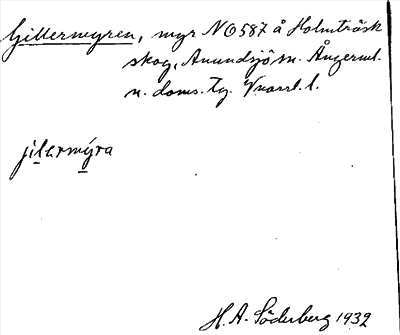 Gillermyren, myr NO587 å Holmträsk
skog, Anundsjö sn. Ångerml.
n. doms. Tg.
jilermýra
H. A. Söderberg 1932